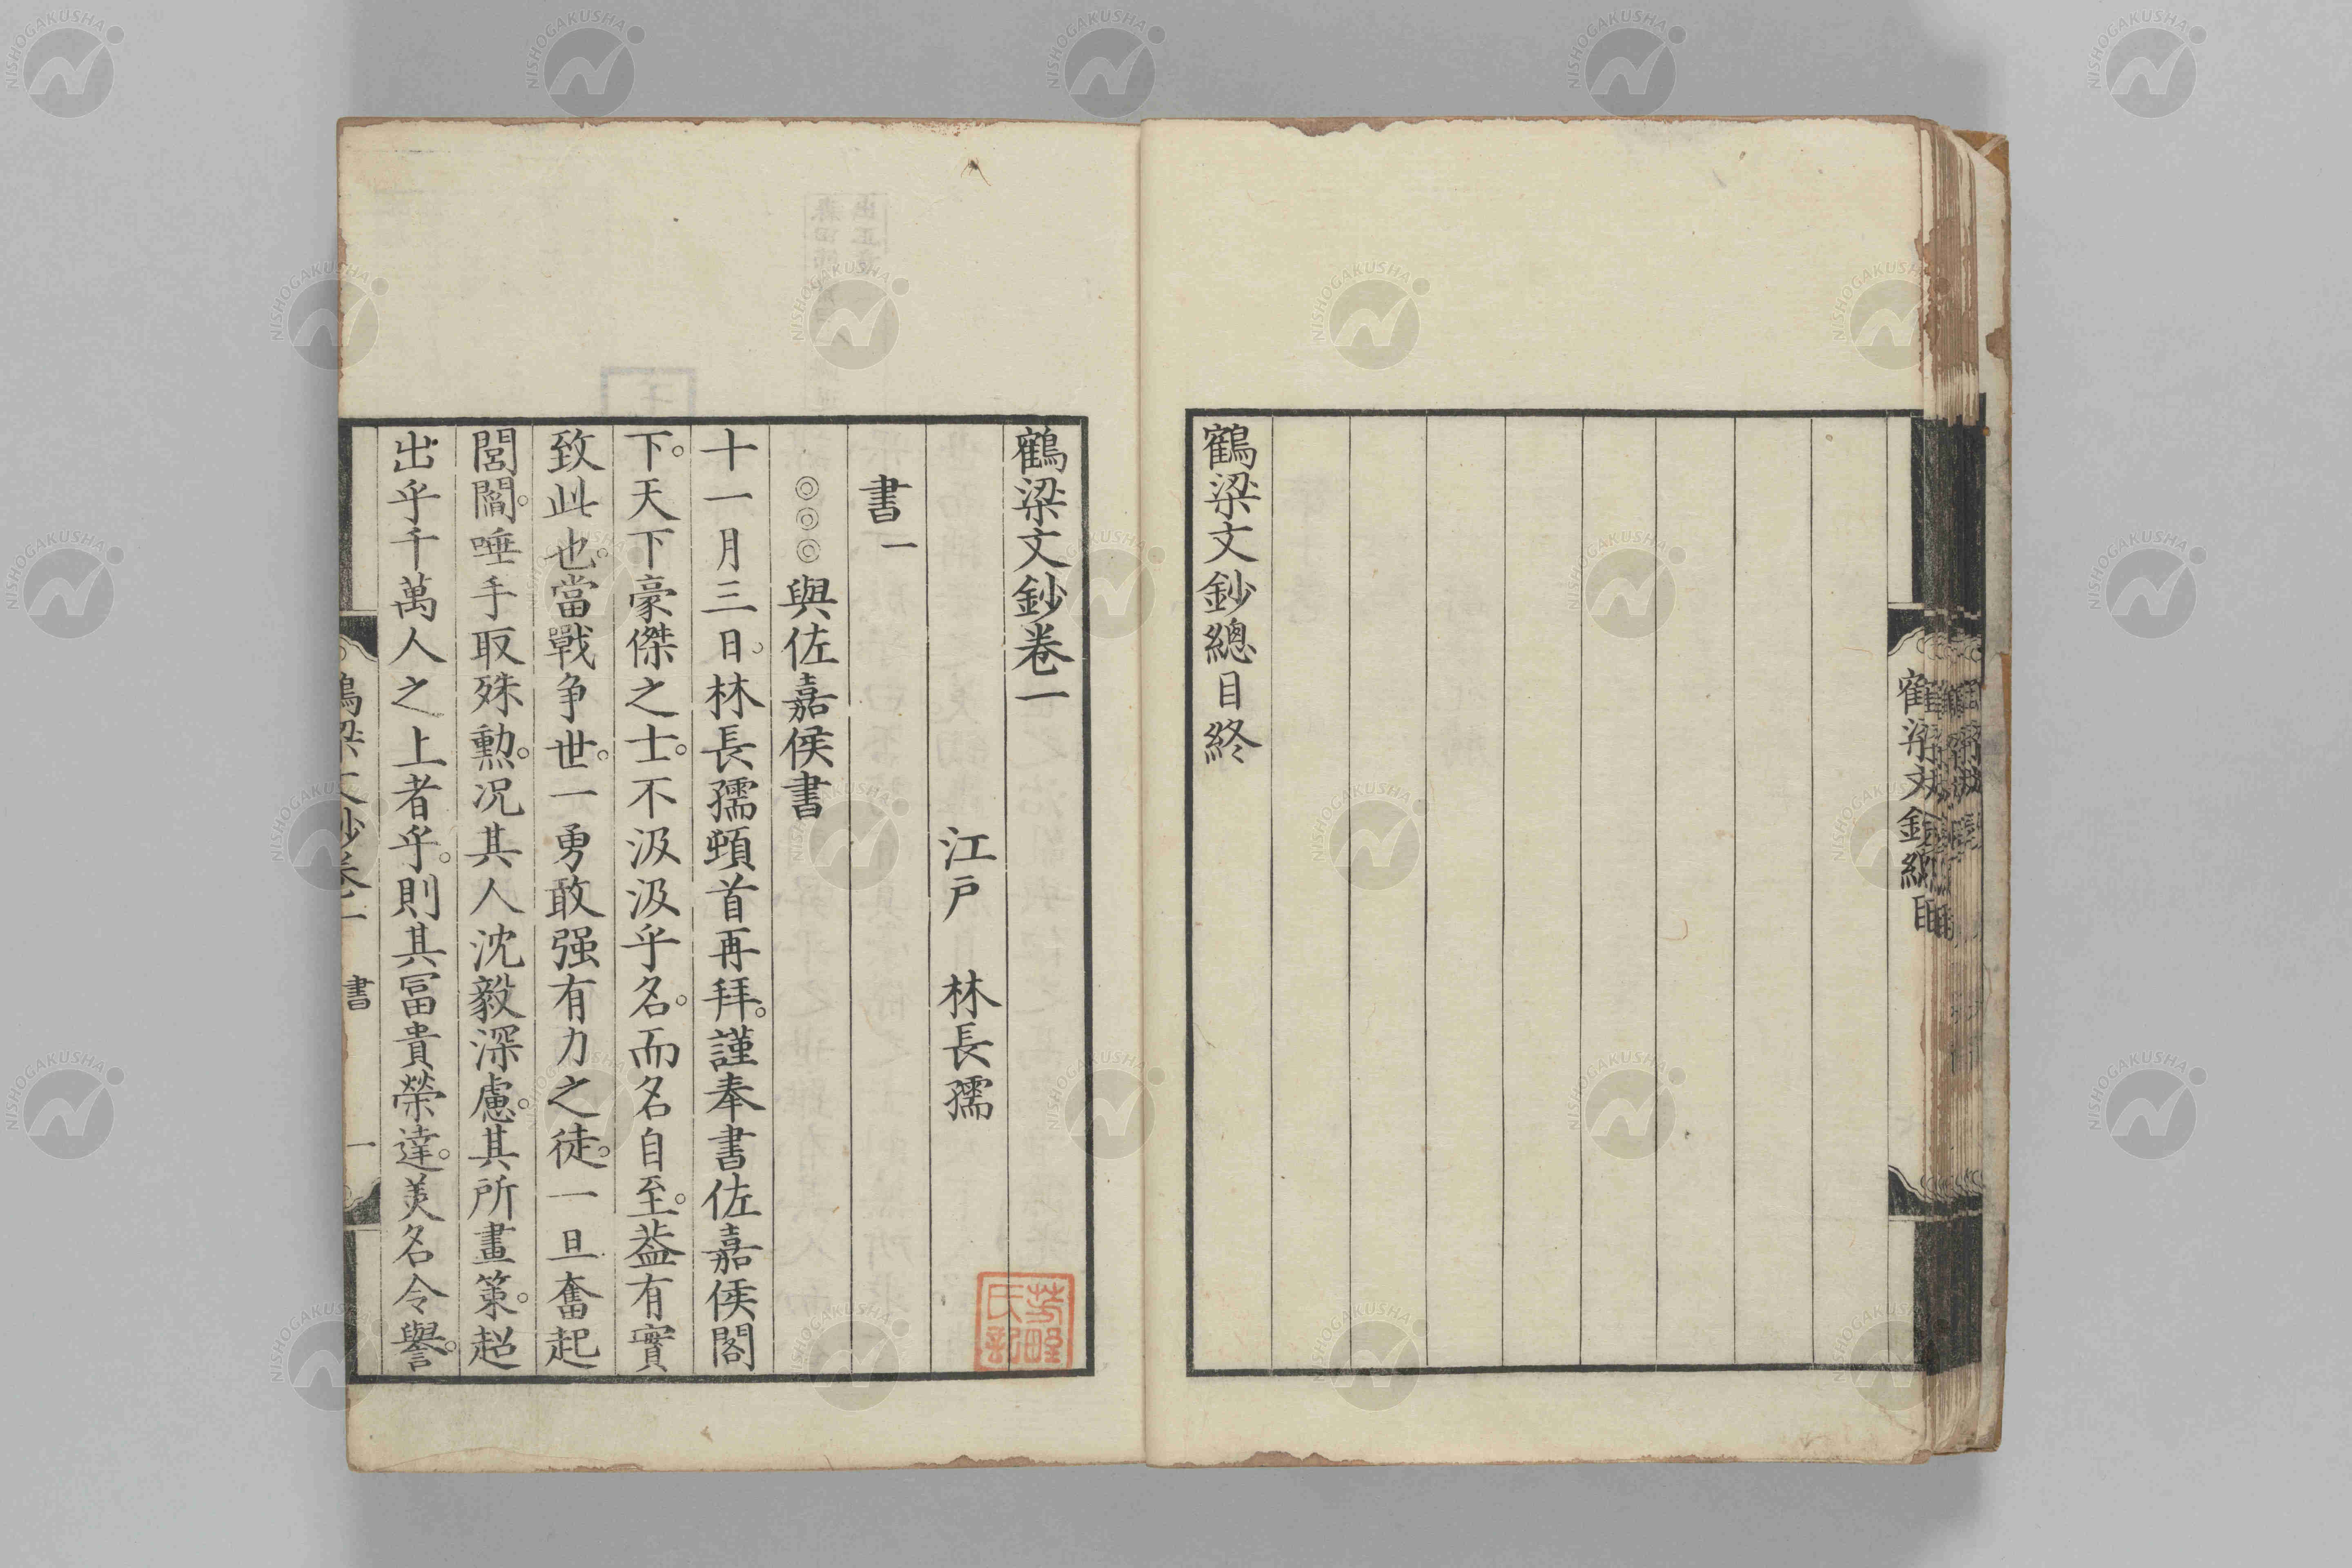 鶴梁文鈔總目終
鶴梁文鈔總目
鶴梁文鈔卷一
江戸 林長孺
書一
◎◎◎與佐嘉侯書
十一月三日。林長孺頓首再拜。謹奉書佐嘉侯閤
下。天下豪傑之士。不汲汲乎名。而名自至。葢有實
致此也。當戰争世。一勇敢强有力之徒。一旦奮起
閭閻。唾手取殊勲。况其人沈毅深慮。其所畫策。超
出乎千萬人之上者乎。則其冨貴榮達。美名令譽。
鶴梁文鈔卷一 書 一
NISHOGAKUSHA